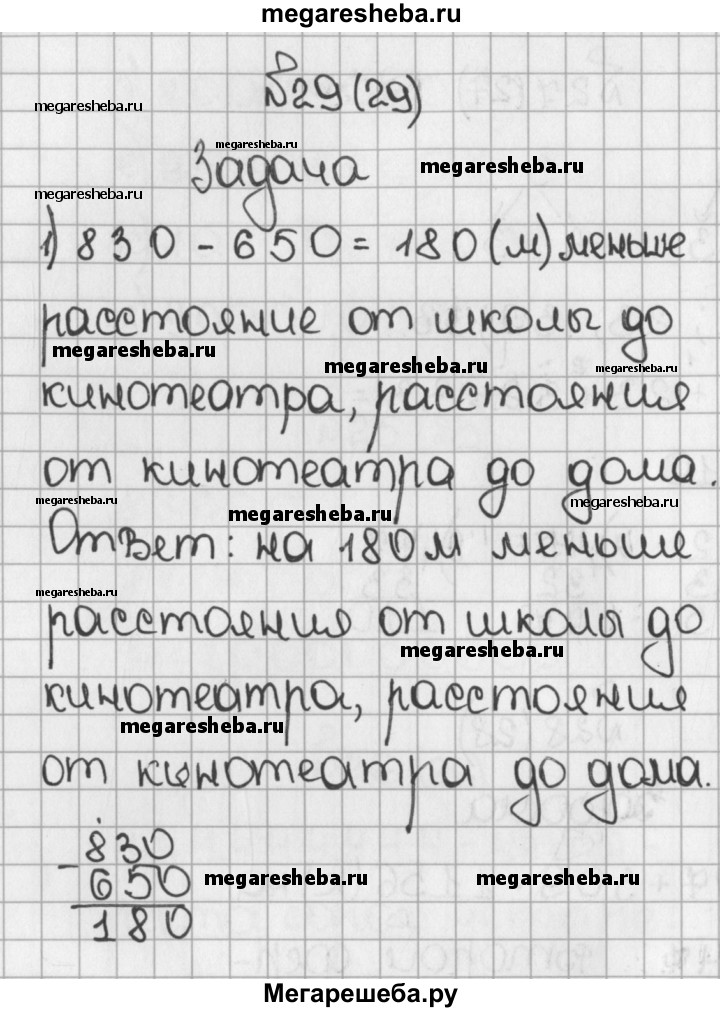 megaresheba.ru
№29 (29)
megaresheba.ru
megaresheba.ru
Задача
megaresheba.ru
megaresheba.ru
1) 830 - 650 = 180 (м) меньше
расстояние от школы до
megaresheba.ru
megaresheba.ru
megaresheba.ru
кинотеатра, расстояния
от кинотеатра до дома.
megaresheba.ru
megaresheba.ru
megaresheba.ru
Ответ: на 180 м меньше
megaresheba.ru
расстояния от школы до
megaresheba.ru
кинотеатра, расстояния
megaresheba.ru
от кинотеатра до дома.
830
- 650
megaresheba.ru
megaresheba.ru
180
Мегарешеба.ру